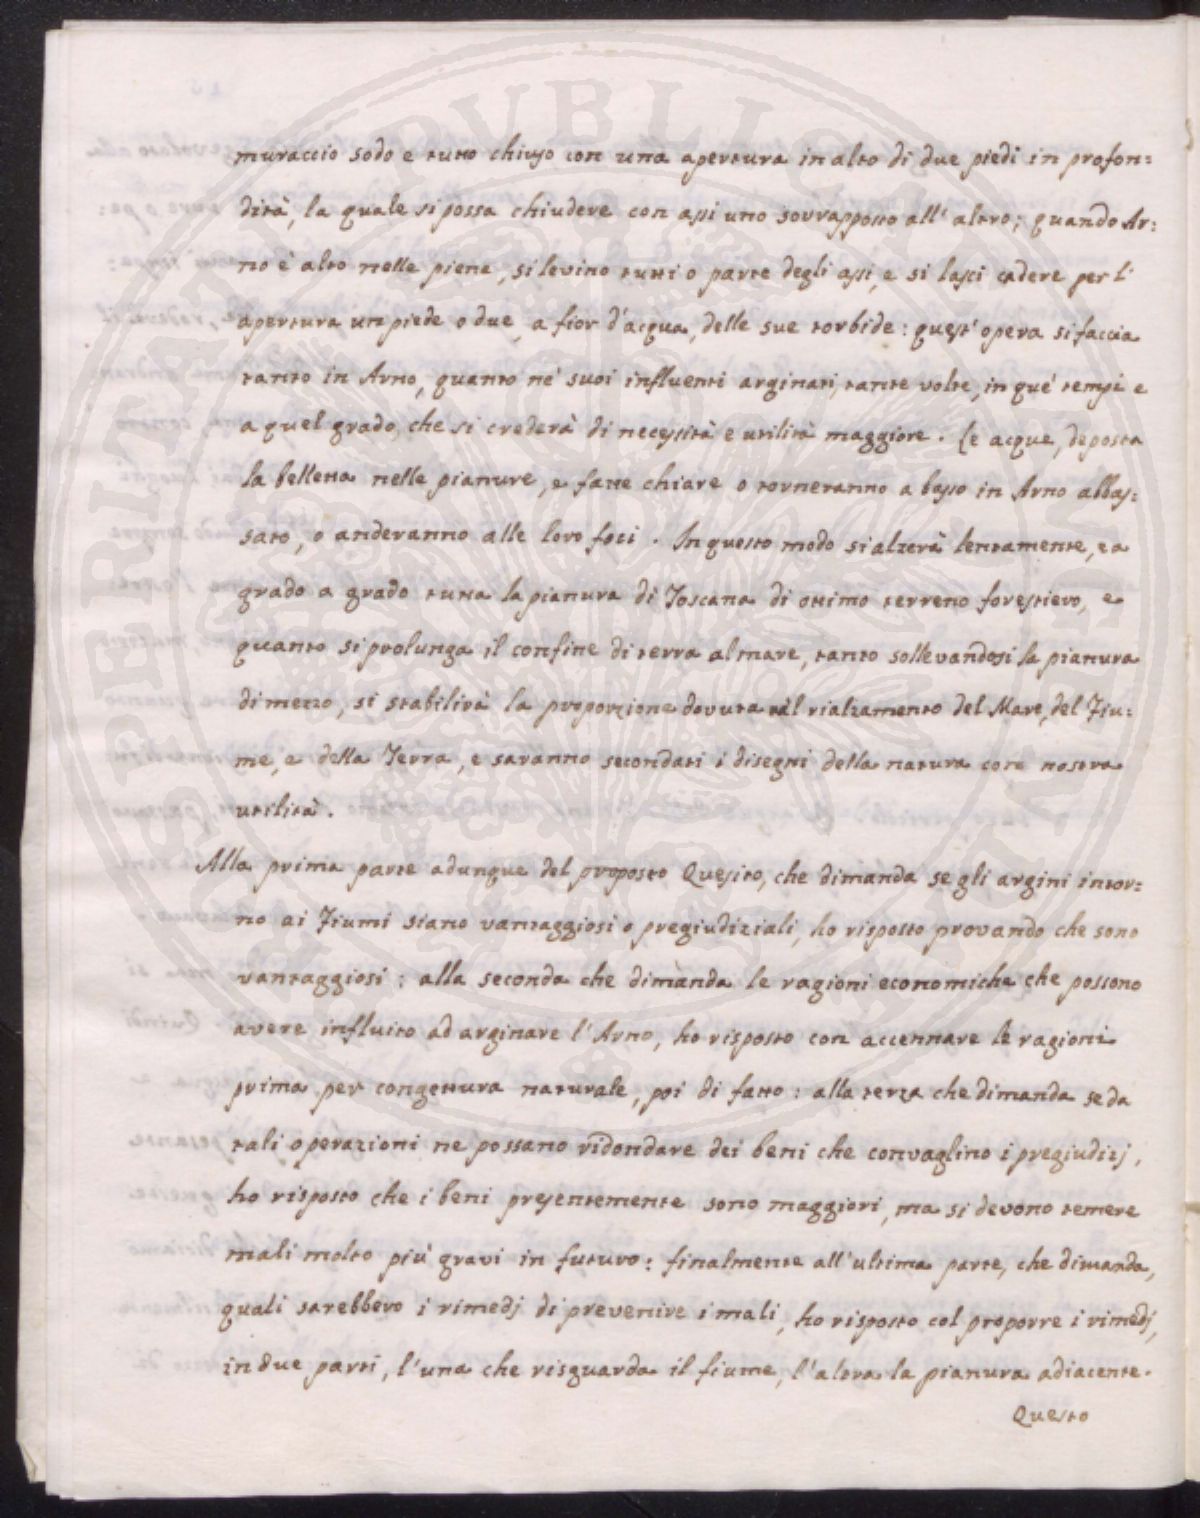 muraccio sodo e tutto chiuso con una apertura in alto di due piedi in profon:
dità, la quale si possa chiudere con assi uno sovrapposto all' altro; quando Ar:
no è alto nelle piene, si levino tutti o parte degli assi, e si lasci cadere per l'
apertura un piede o due, a fior d'acqua, delle sue torbide: quest' opera si faccia
tanto in Arno, quanto ne' suoi influenti arginati, tante volte, in que' tempi e
a quel grado, che si crederà di necessità e utilità maggiore. Le acque, deposta
la belletta nelle pianure, e fatte chiare o torneranno a basso in Arno abbas:
sato, o anderanno alle loro foci. In questo modo si alzerà lentamente, e a
grado a grado tutta la pianura di Toscana di ottimo terreno forestiero, e
quanto si prolunga il confine di terra al mare, tanto sollevandosi la pianura
di mezzo, si stabilirà la proporzione dovuta al rialzamento del Mare, del Fiu:
me, e della Terra, e saranno secondati i disegni della natura con nostra
utilità.
Alla prima parte adunque del proposto Quesito, che dimanda se gli argini intor:
no ai Fiumi siano vantaggiosi o pregiudiziali, ho risposto provando che sono
vantaggiosi: alla seconda che dimanda le ragioni economiche che possono
avere influito ad arginare l'Arno, ho risposto con accennare le ragioni
prima per congettura naturale, poi di fatto: alla terza che dimanda se da
tali operazioni ne possano ridondare dei beni che convaglino i pregiudizj,
ho risposto che i beni presentemente sono maggiori, ma si devono temere
mali molto più gravi in futuro: finalmente all'ultima parte, che dimanda,
quali sarebbero i rimedj di prevenire i mali, ho risposto col proporre i rimedj,
in due parti, l'una che risguarda il fiume, l'altra la pianura adiacente.
Questo